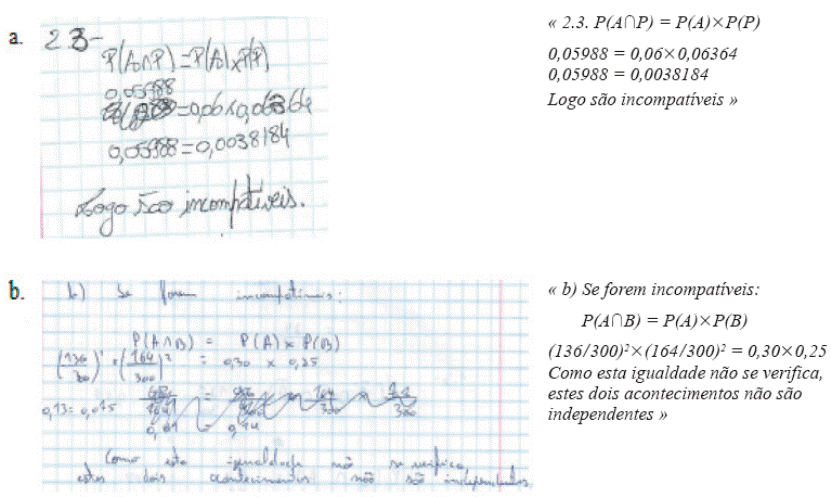 a.
2.3-
P(A∩P)=P(A)×P(P)
0,05988
=0,06×0,06364
0,05988=0,0038184
Logo são incompatíveis.
« 2.3. P(A∩P) = P(A)×P(P)
0,05988 = 0,06×0,06364
0,05988 = 0,0038184
Logo são incompatíveis »
b.
b) Se forem incompatíveis:
P(A∩B) = P(A) × P(B)
× (164/300)² = 0,30 × 0,25
0,13 = 0,075
Como esta igualdade não se verifica,
estes dois acontecimentos não são independentes
« b) Se forem incompatíveis:
P(A∩B) = P(A)×P(B)
(136/300)²×(164/300)² = 0,30×0,25
Como esta igualdade não se verifica,
estes dois acontecimentos não são
independentes »